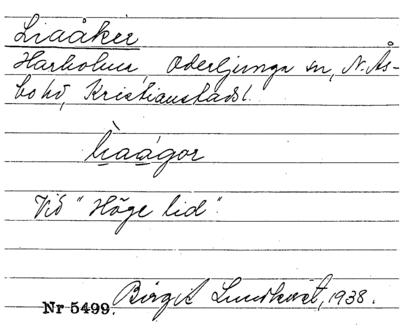 Liaåker
Harholma, Oderljunga sn, N. Ås-
bo hd, Kristianstads l.
li̱aa̱gor
Vid "Höge lid".
Birgit Lundkvist, 1938.
Nr 5499.